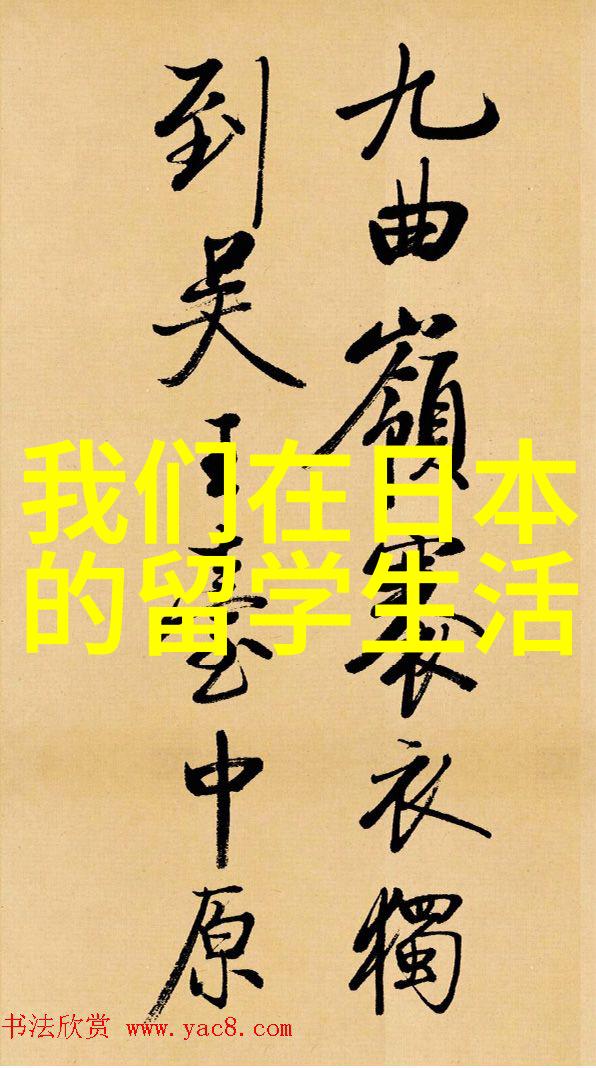 九曲嶺褰衣獨
到吴王臺中原
我们在日本
的留学生活
书法欣赏 www.yac8.com